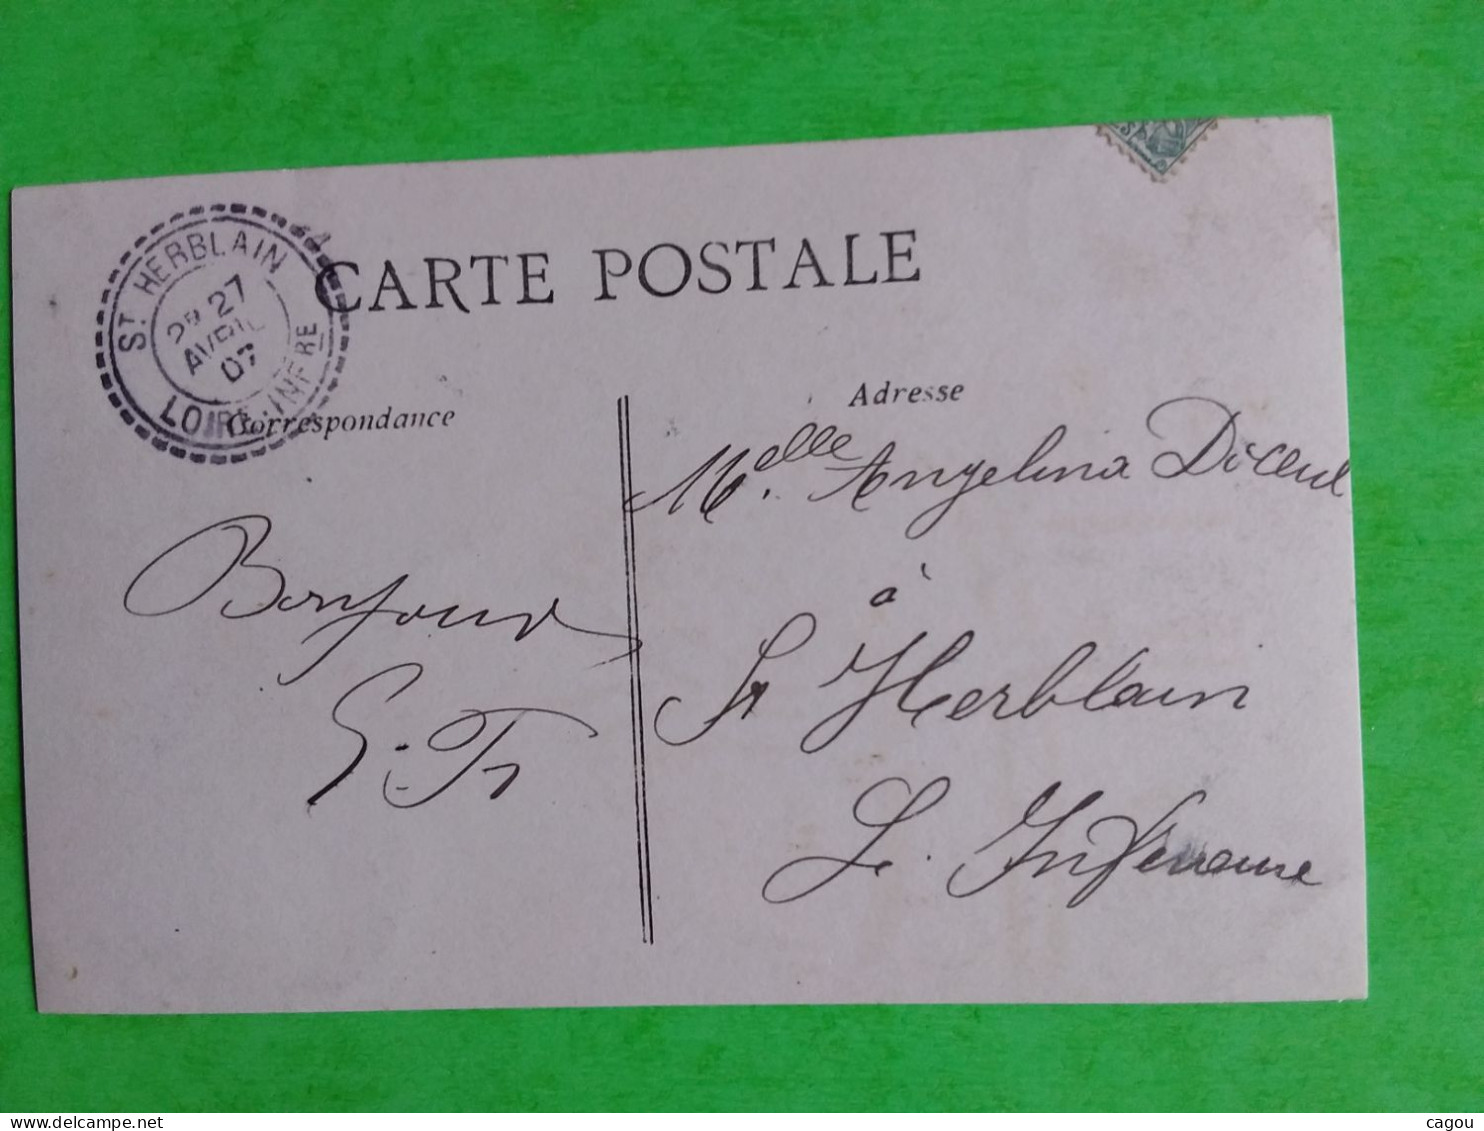 CARTE POSTALE
ST HERBLAIN
2E 27
AVRIL
07
LOIRE-INFRE
Correspondance
Adresse
Melle. Angelina Diceul
à
St Herblain
L. Inférieure
Bonjour
S. Fr
delcampe.net
cagou